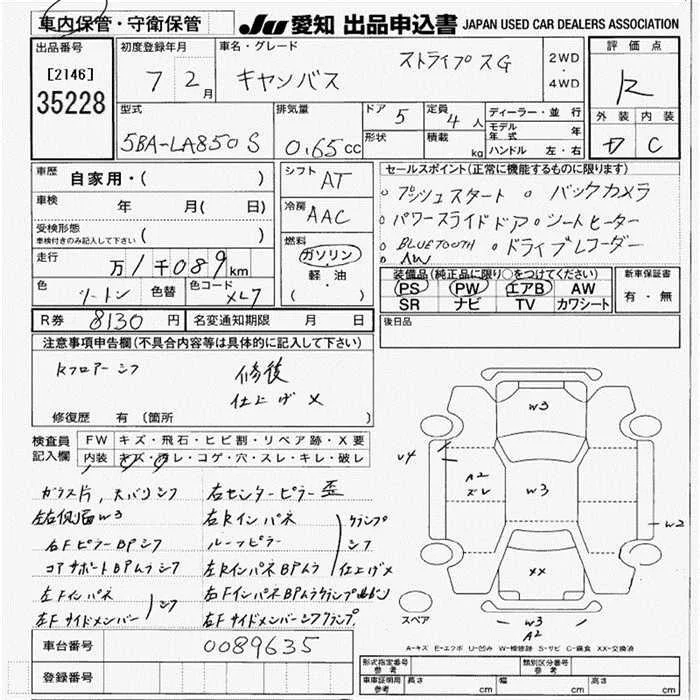 車内保管・守衛保管
JU 愛知 出品申込書 JAPAN USED CAR DEALERS ASSOCIATION
出品番号 初度登録年月 車名・グレード 評価点
[2146] 7 2月 キャンバス ストライプス G 2WD・4WD R
35228
型式 排気量 ドア 5 定員 4人 ディーラー・並行 外装 内装
5BA-LA850S 0.65cc 形状 積載 kg モデル年式 年 C
ハンドル 左・右
車歴 自家用・( ) シフト AT セールスポイント(正常に機能するものに限ります)
車検 年 月( 日) 冷房 AAC ○プッシュスタート ○バックカメラ
受検形態 ( ) ○パワースライドドア ○シートヒーター
車検付きのみ記入して下さい 燃料 ○BLUETOOTH ○ドライブレコーダー
走行 万1千089km ガソリン ○AW
軽油 装備品(純正品に限り○をつけてください) 新車保証書
色 ツートン 色替 色コード XL7 ( ) PS PW エアB AW 有・無
SR ナビ TV カワシート
R券 8130円 名変通知期限 月 日 後日品
注意事項申告欄(不具合内容等は具体的に記入して下さい)
Rフロアーシフ 修後
仕上げ×
修復歴 有(箇所 )
検査員記入欄 FW キズ・飛石・ヒビ割・リペア跡・X要
内装 キズ・汚レ・コゲ・穴・スレ・キレ・破レ
ガラス片, スバリシフ 右センターピラー歪
左右側面W3 右Rインパネ クランプ
右FピラーBPシフ ルーフピラー シフ
コアサポートBPムラシフ 左RインパネBPムラ 仕上げ×
左Fインパネ シフ
左Fサイドメンバー 右Fサイドメンバーシフクランプ
W3
U4 A2 ズレ W3 W2
XX
スペア W3
A2
A-キズ E-エクボ U-凹み W-補修跡 S-サビ C-腐食 XX-交換済
車台番号 0089635
登録番号
形式指定番号 参考 類別区分番号 参考
車庫証明用 参考 長さ cm 幅 cm 高さ cm